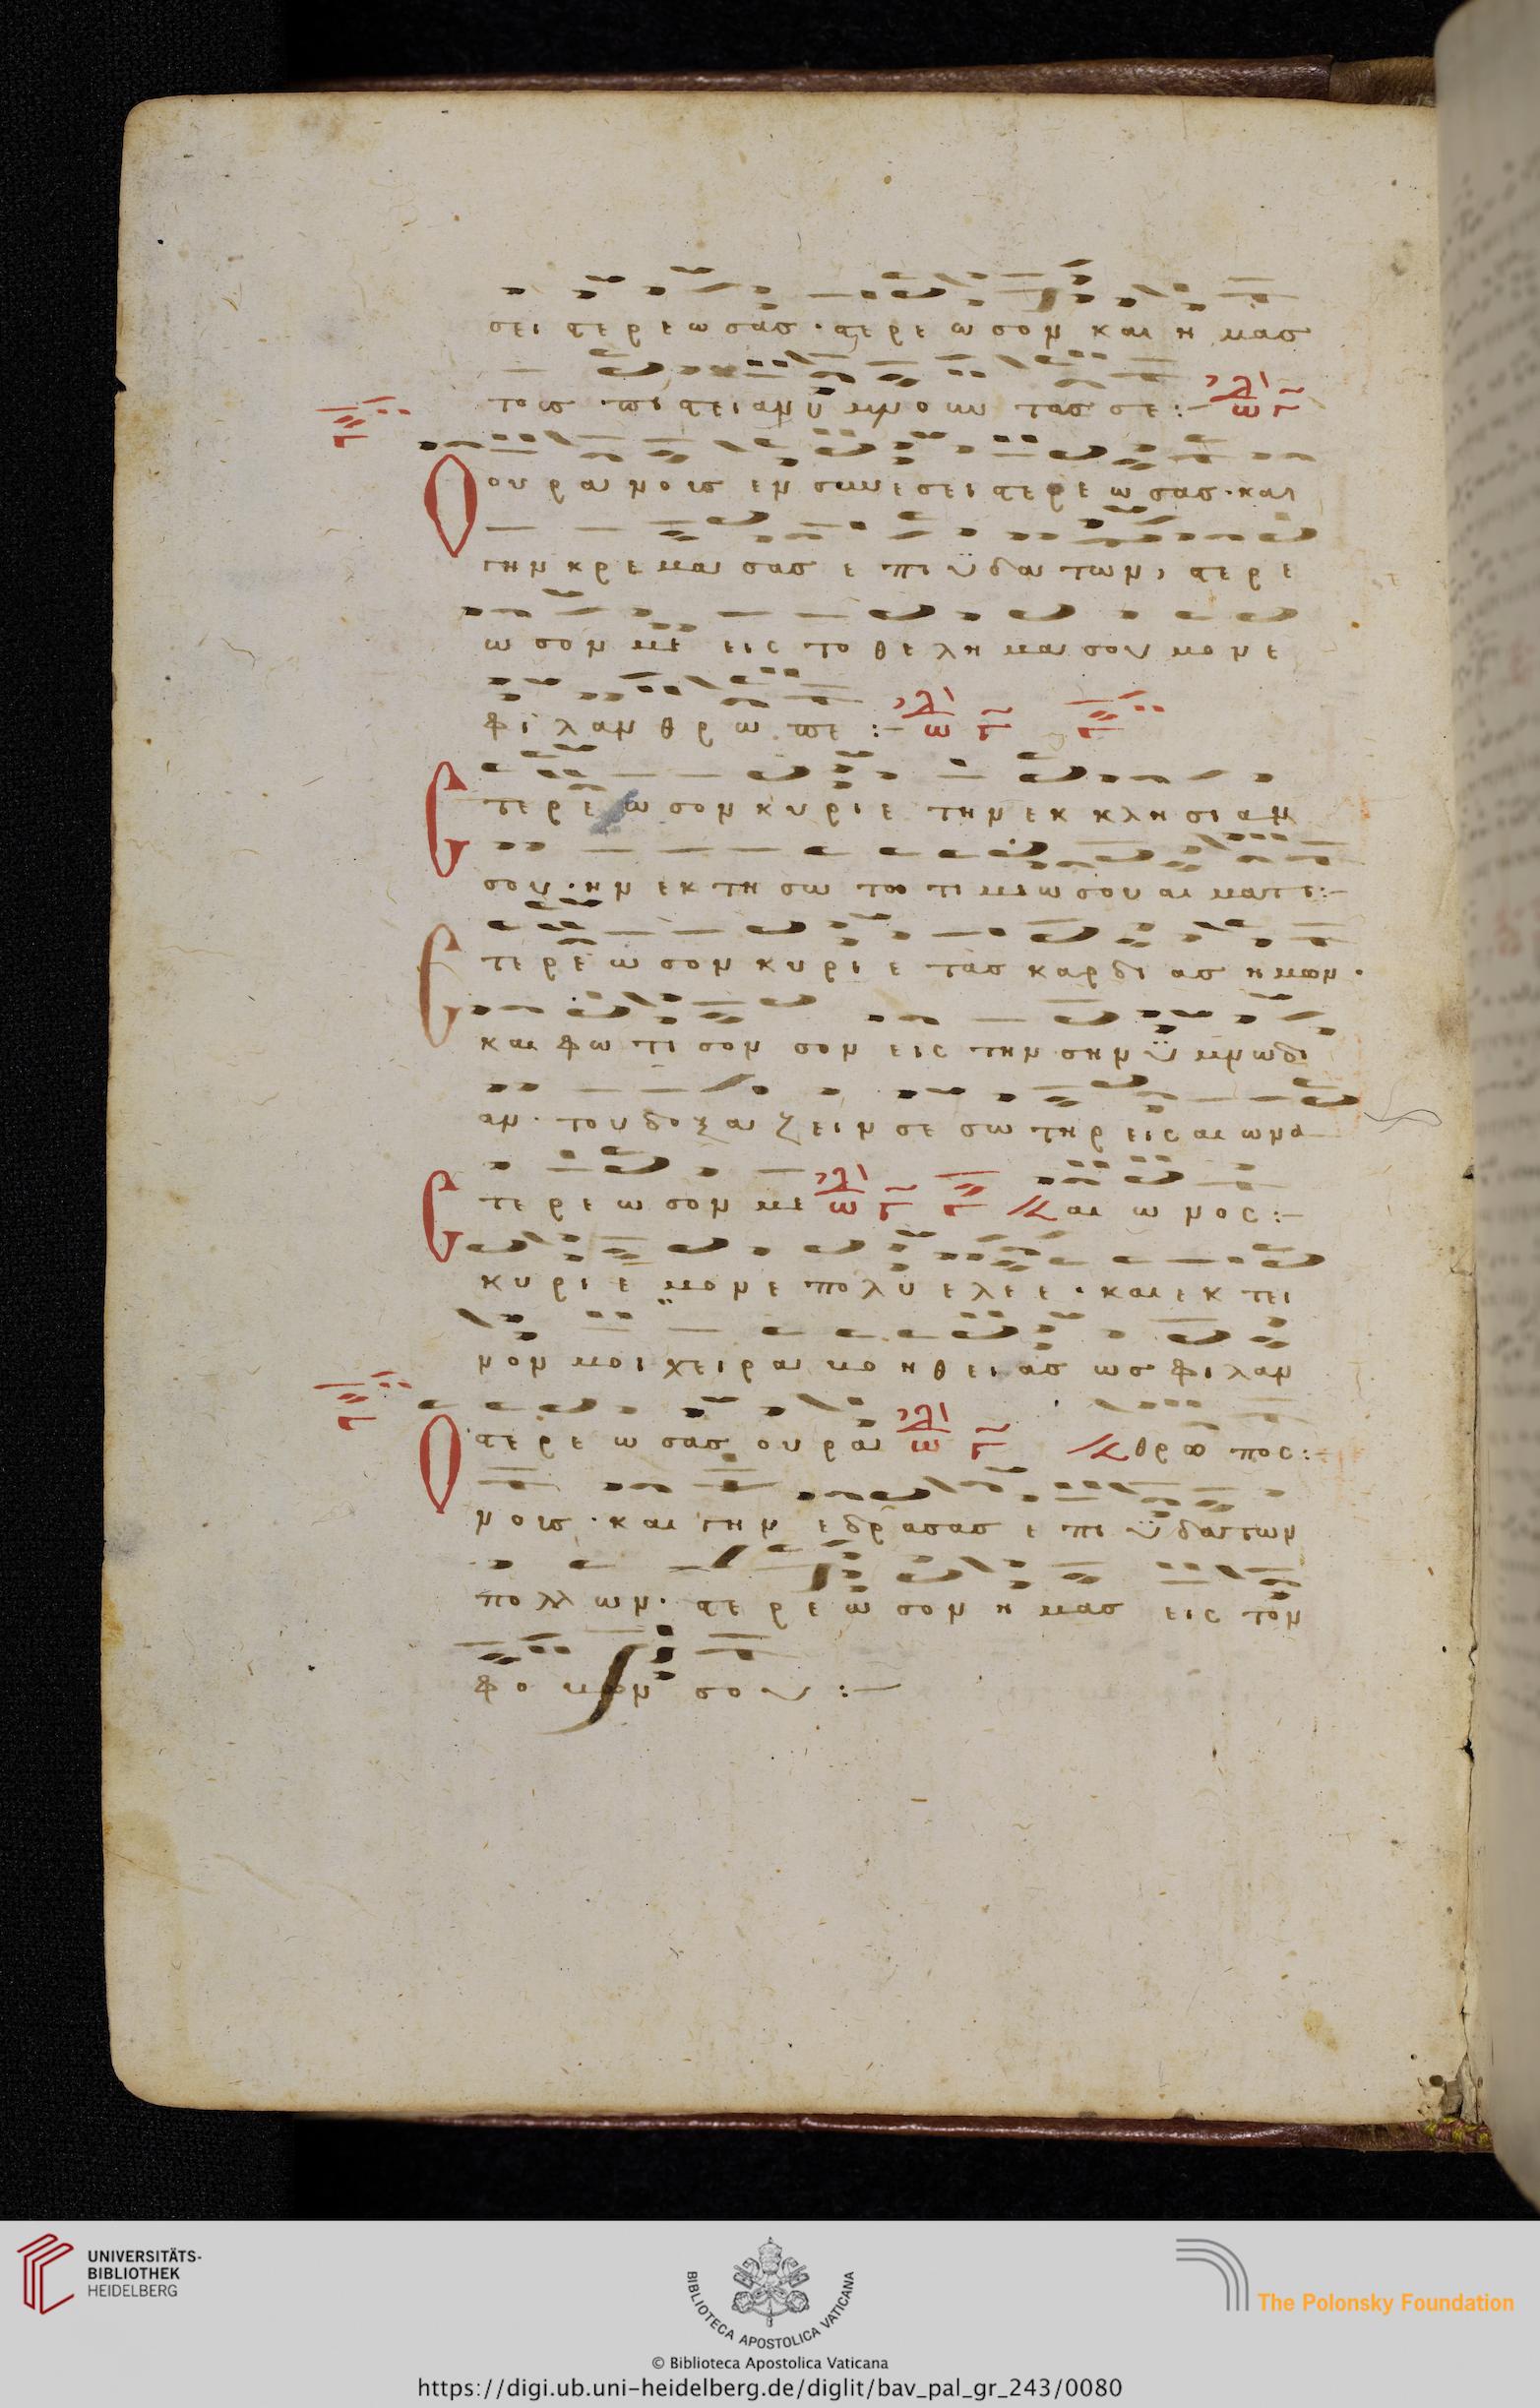 σει στερεωσας · στερεωσον και ημας
τους πιστει ανυμνουντας σε :- ἄλλος
Ο ουρανους εν συνεσει στερεωσας · και
γην κρεμασας επι ϋδατων, στερε
ωσον με εις το θελημα σου μονε
φιλανθρωπε :- ἄλλος
C τερεωσον κυριε την εκκλησιαν
σου · ην εκτησω τω τιμιω σου αιματι :-
C τερεωσον κυριε τας καρδιας ημων ·
και φωτισον σον εις την σην ϋμνωδι
αν · του δοξαζειν σε σωτηρ εις αιωνα
C τερεωσον με ἄλλος αιωνος :-
κυριε μονε πολυελεε · και εκτει
νον μοι χειρα βοηθειας ως φιλαν
Ο στερεωσας ουρα θρωπος :-
νους · και γην εδρασας επι ϋδατων
πολλων · στερεωσον ημας εις τον
φοβον σου :-
UNIVERSITÄTS-
BIBLIOTHEK
HEIDELBERG
BIBLIOTECA APOSTOLICA VATICANA
The Polonsky Foundation
© Biblioteca Apostolica Vaticana
https://digi.ub.uni-heidelberg.de/diglit/bav_pal_gr_243/0080